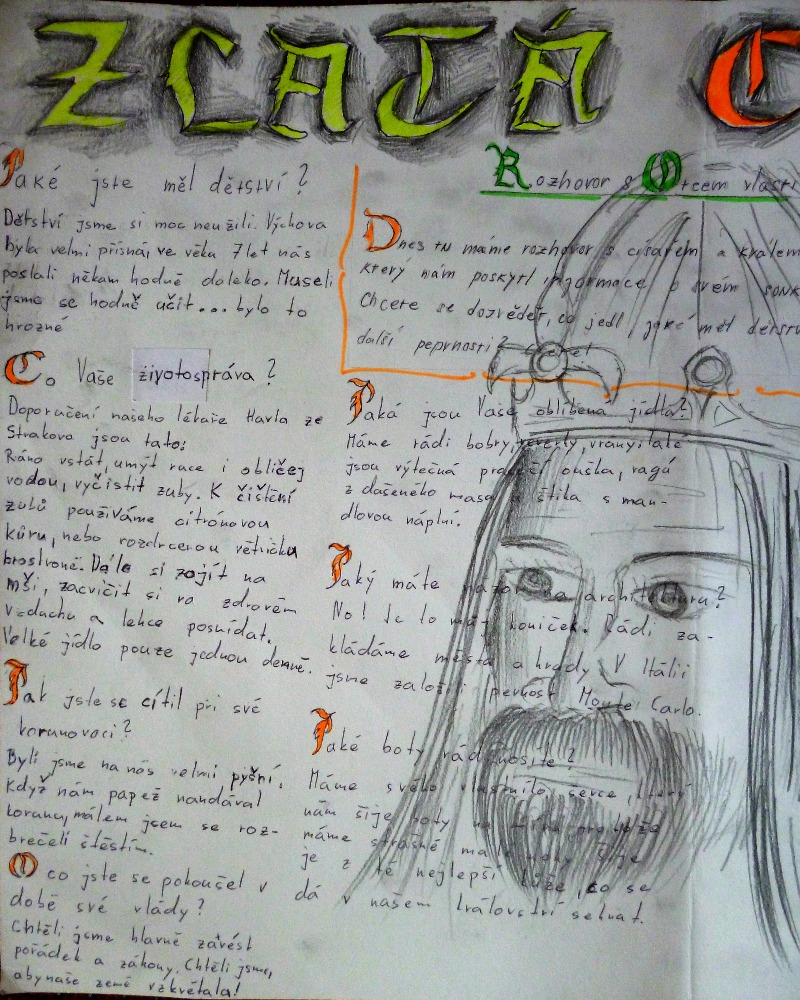 ZLATÁ
Rozhovor s Otcem vlasti
Dnes tu máme rozhovor s císařem a králem
který nám poskytl informace o svém
Chcete se dozvědět, co jedl, jaké měl dětství
další peprnosti?
Jaké jste měl dětství?
Dětství jsme si moc neužili. Výchova
byla velmi přísná, ve věku 7 let nás
poslali někam hodně daleko. Museli
jsme se hodně učit... bylo to
hrozné
Co Vaše životospráva?
Doporučení našeho lékaře Havla ze
Strakova jsou tato:
Ráno vstát, umýt ruce i obličej
vodou, vyčistit zuby. K čištění
zubů používáme citrónovou
kůru, nebo rozdrcenou větvičku
broskvoně. Dále si zojít na
mši, zacvičit si na zdravém
vzduchu a lehce posnídat.
Velké jídlo pouze jednou denně.
Jak jste se cítil při své
korunovaci?
Byli jsme na nás velmi pyšní.
Když nám papež nandával
korunu, málem jsem se roz-
brečeli štěstím.
O co jste se pokoušel v
době své vlády?
Chtěli jsme hlavně zavést
pořádek a zákony. Chtěli jsme,
aby naše země vzkvétala!
Jaká jsou Vaše oblíbená jídla?
Máme rádi bobry, veverky, vrány, ale
jsou výtečná prasečí ouška, ragú
z dušeného masa a štika s man-
dlovou náplní.
Jaký máte názor na architekturu?
No! Je to můj koníček. Rádi za-
kládáme města a hrady. V Itálii
jsme založili pevnost Monte Carlo.
Jaké boty rád nosíte?
Máme svého vlastního ševce, který
nám šije boty na míru protože
máme strašně malé nohy. Šije
je z té nejlepší kůže, co se
dá v našem království sehnat.